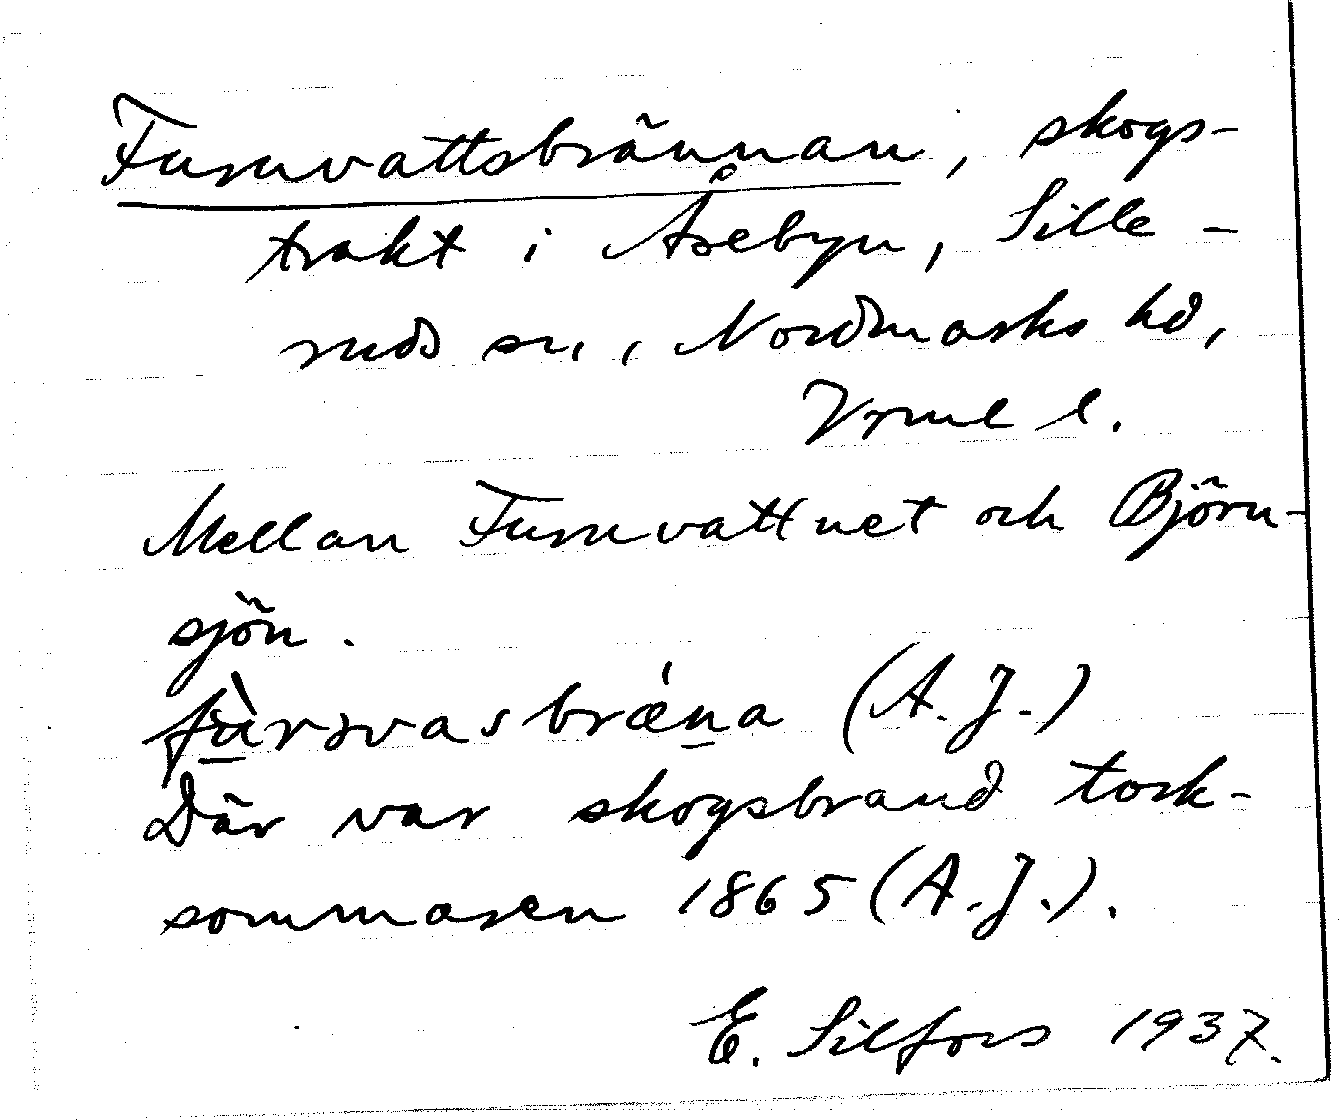 Furuvattsbrännan, skogs-
trakt i Åsebyn, Sille-
ruds sn., Nordmarks hd,
Vrml l.
Mellan Furuvattnet och Björn-
sjön.
(A.J.)
Där var skogsbrand tork-
sommaren 1865 (A.J.).
E. Silfors 1937.